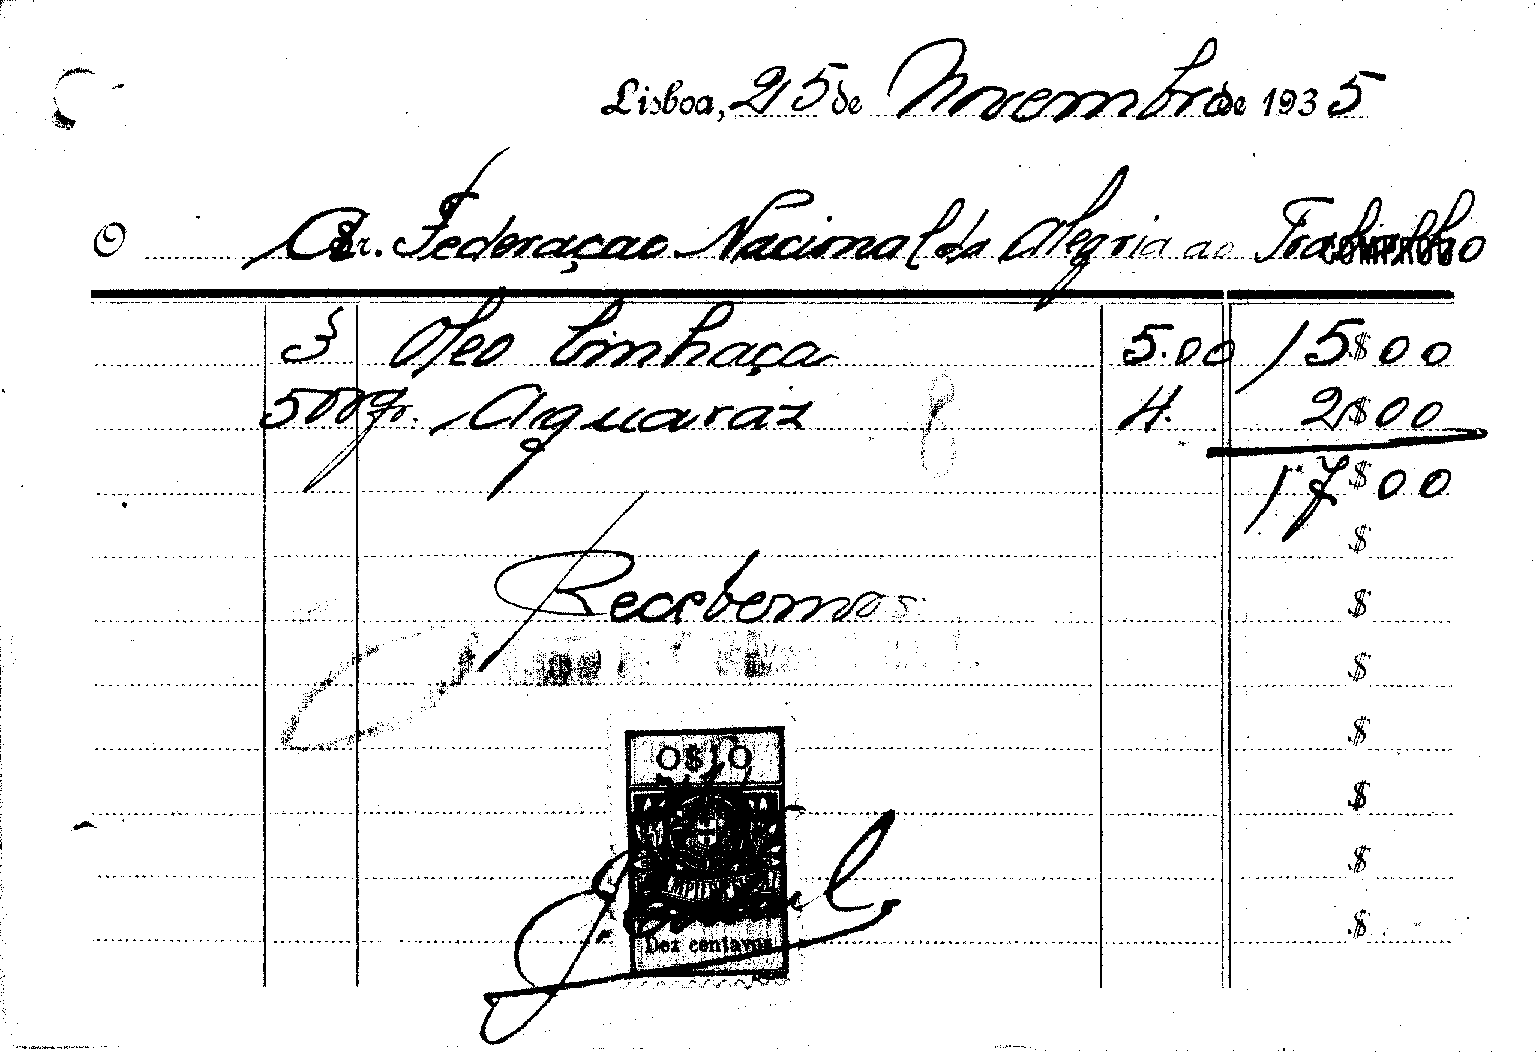 Lisboa, 25 de Novembro de 1935
O Sr. Federação Nacional da Alegria ao Trabalho
3 Oleo linhaça 5.00 15$00
500gr. Aguaraz 4. 2$00
17$00
$
Recebemos
$
$
$
0$10
$
$
$
Dez centavos